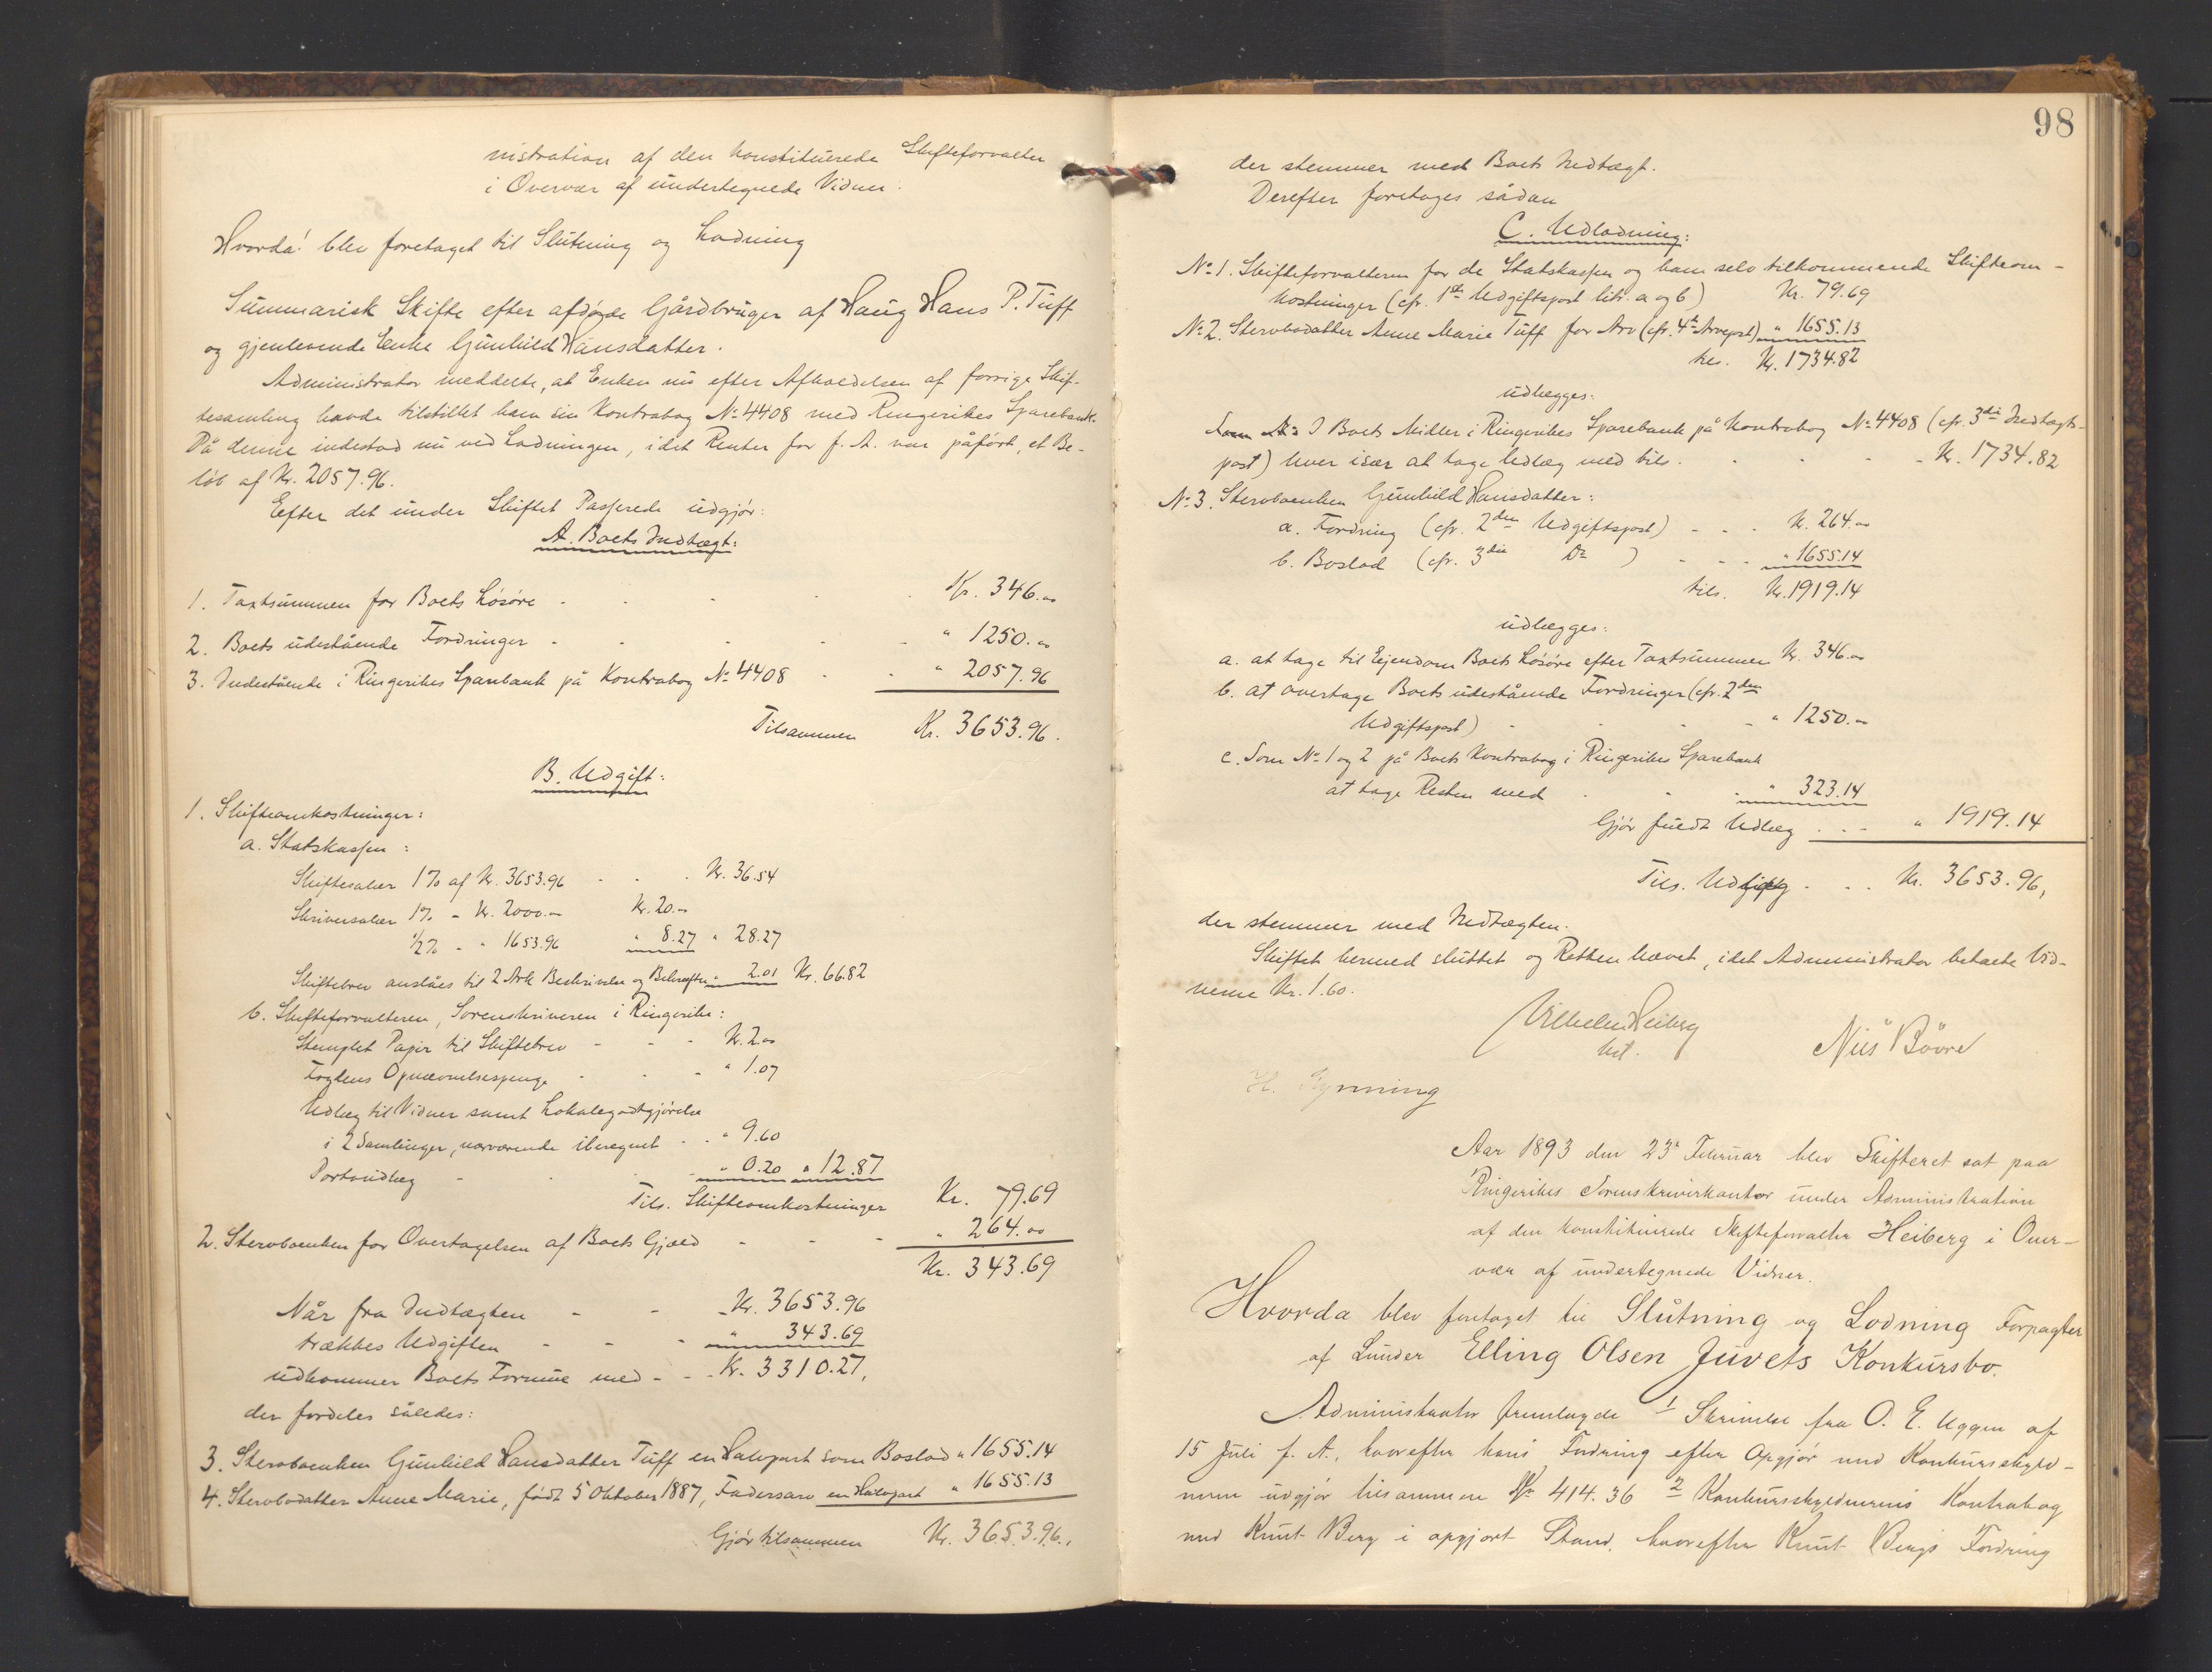 nistration af den konstituerede Skifteforvalter
i Overvær af undertegnede Vidner.
Hvorda! blev foretaget til Slutning og Lodning
Summarisk Skifte efter afdøde Gårdbruger af Haug Hans P. Tuff
og gjenlevende Enke Gunhild Hansdatter.
Administrator meddelte, at Enken nu efter Afholdelsen af forrige Skif-
tesamling havde tilstillet ham sin Kontrabog No 4408 med Ringerikes Sparebank.
På denne indestod nu ved Lodningen, idet Renter for f. A. var påført, et Be-
løb af Kr. 2057.96.
Efter det under Skiftet Passerede udgjør:
A. Boets Indtægt:
1. Taxtsummen for Boets Løsøre - - - - Kr. 346.00
2. Boets udestående Fordringer - - - - " 1250.00
3. Indestående i Ringerikes Sparebank på Kontrabog No 4408 - - " 2057.96
Tilsammen Kr. 3653.96.
B. Udgift:
1. Skifteomkostninger:
a. Statskassen:
Skiftesalær 1% af Kr. 3653.96 - - . Kr. 36.54
Skriversalær 1% - Kr. 2000.00 Kr. 20.00
1/2% - " 1653.96 " 8.27 " 28.27
Skiftebrev anslåes til 2 Ark Beskrivelse og Bekræftn. " 2.01 Kr. 66.82
b. Skifteforvalteren, Sorenskriveren i Ringerike:
Stemplet Papir til Skiftebrev - - - Kr. 2.00
Fogdens Opnævnelsespenge - - - " 1.07
Udlæg til Vidner samt Lokalegodtgjørelse
i 2 Samlinger, nærværende iberegnet - . " 9.60
Portoudlæg - - - " 0.20 " 12.87
Tils. Skifteomkostninger Kr. 79.69
2. Stervboenken for Overtagelsen af Boets Gjæld - - - " 264.00
Kr. 343.69
Når fra Indtægten - - - Kr. 3653.96
trækkes Udgiften - - - " 343.69
udkommer Boets Formue med - - - Kr. 3310.27,
der fordeles således:
3. Stervboenken Gunhild Hansdatter Tuff en Halvpart som Boslod " 1655.14
4. Stervbodatter Anne Marie, født 5 Oktober 1887, Fadersarv en Halvpart " 1655.13
Gjør tilsammen Kr. 3653.96.,
98
der stemmer med Boets Indtægt.
Derefter foretages sådan
C. Udlodning:
No 1. Skifteforvalteren for de Statskassen og ham selv tilkommende Skifteom-
kostninger (cfr. 1ste Udgiftspost litr. a og b) Kr. 79.69
No 2. Stervbodatter Anne Marie Tuff for Arv (cfr. 4de Arvepost) " 1655.13
tils. Kr. 1734.82
udlægges:
I Boets Midler i Ringerikes Sparebank på Kontrabog No 4408 (cfr. 3die Indtægts-
post) hver især at tage Udlæg med tils. - - - Kr. 1734.82
No 3. Stervboenken Gunhild Hansdatter:
a. Fordring (cfr. 2den Udgiftspost) - - - Kr. 264.00
b. Boslod (cfr. 3die Do ) - - - " 1655.14
tils. Kr. 1919.14
udlægges:
a. at tage til Eiendom Boets Løsøre efter Taxtsummen Kr. 346.00
b. at overtage Boets udestående Fordringer (cfr. 2den
Udgiftspost) - - - " 1250.00
c. Som No 1 og 2 på Boets Kontrabog i Ringerikes Sparebank
at tage Resten med - - - " 323.14
Gjør fuldt Udlæg . - - " 1919.14
Tils. Udlæg . . . Kr. 3653.96,
der stemmer med Indtægten.
Skiftet hermed sluttet og Retten hævet, idet Administrator betalte Vid-
nerne Kr. 1.60.
Vilhelm Heiberg
kst.
Nils Bøvre
H. Gynning
Aar 1893 den 23de Februar blev Skifteret sat paa
Ringerikes Sorenskriverkontor under Administration
af den konstituerede Skifteforvalter Heiberg i Over-
vær af undertegnede Vidner.
Hvorda blev foretaget til Slutning og Lodning Forpagter
af Lunder Elling Olsen Juvets Konkursbo.
Administrator fremlagde 1 Skrivelse fra O. E. Uggen af
15 Juli f. A., hvorefter hans Fordring efter Opgjør med Konkursskyld-
neren udgjør tilsammen Kr 414.36 2 Konkursskyldnerens Kontrabog
med Knut Berg i opgjort Stand, hvorefter Knut Bergs Fordring